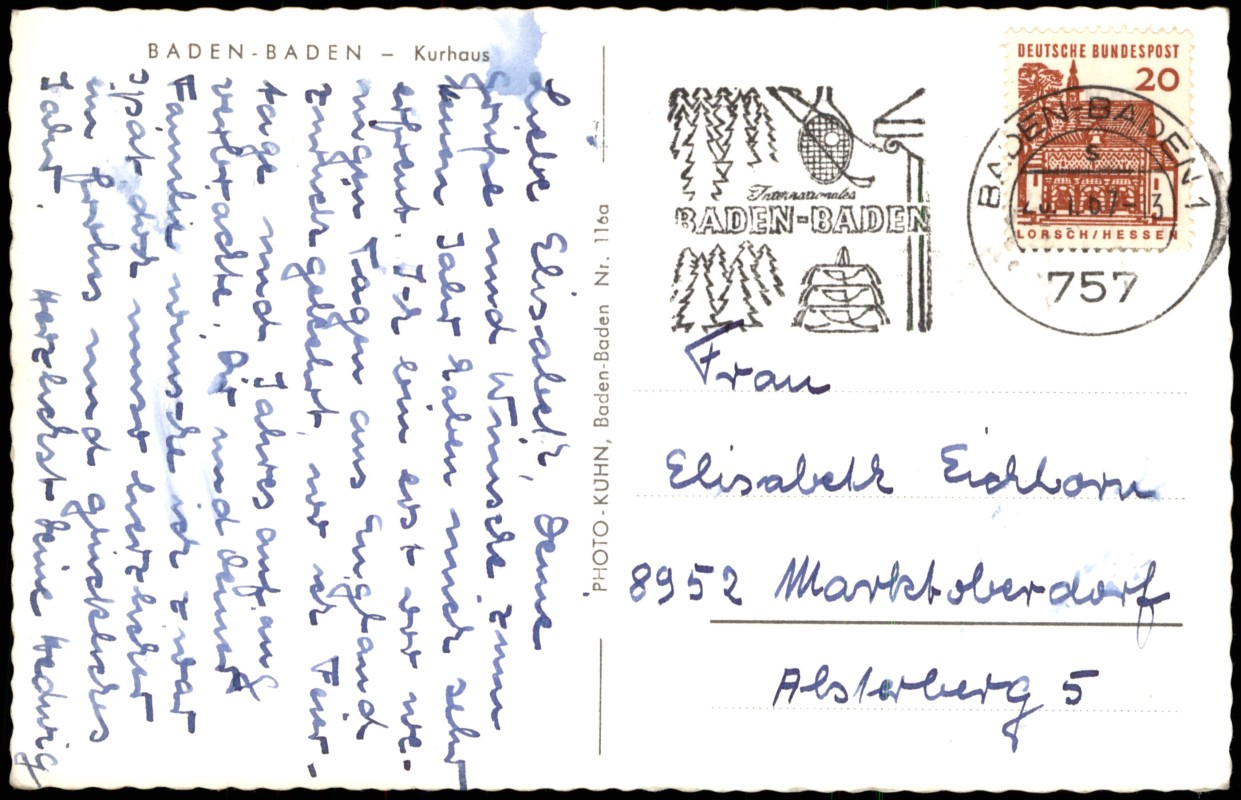 BADEN-BADEN – Kurhaus
Liebe Elisabeth, Deine
Grüße und Wünsche zum
neuen Jahr haben mich sehr
erfreut. Ich bin erst vor we-
nigen Tagen aus England
zurückgekehrt, wo ich Feier-
tage und Jahresanfang
verbrachte. Dir und Deiner
Familie wünsche ich zwar
spät doch umso herzlicher
ein frohes und glückliches
Jahr.
Herzlichst Deine Hedwig
PHOTO-KUHN, Baden-Baden Nr. 116a
Internationales
BADEN-BADEN
DEUTSCHE BUNDESPOST
20
LORSCH/HESSEN
BADEN-BADEN 1
s
1.67-13
757
Frau
Elisabeth Eichhorn
8952 Marktoberdorf
Alsterberg 5